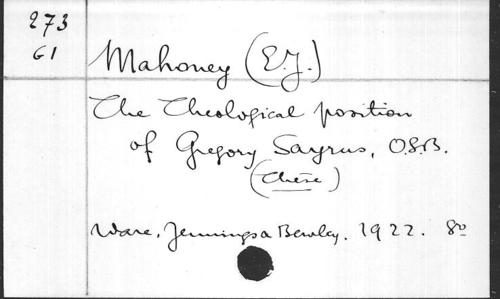 273
G1
Mahoney (E.J.)
The Theological position
of Gregory Sayrus, O.S.B.
(Thèse)
Ware, Jennings a Bewley. 1922. 8º